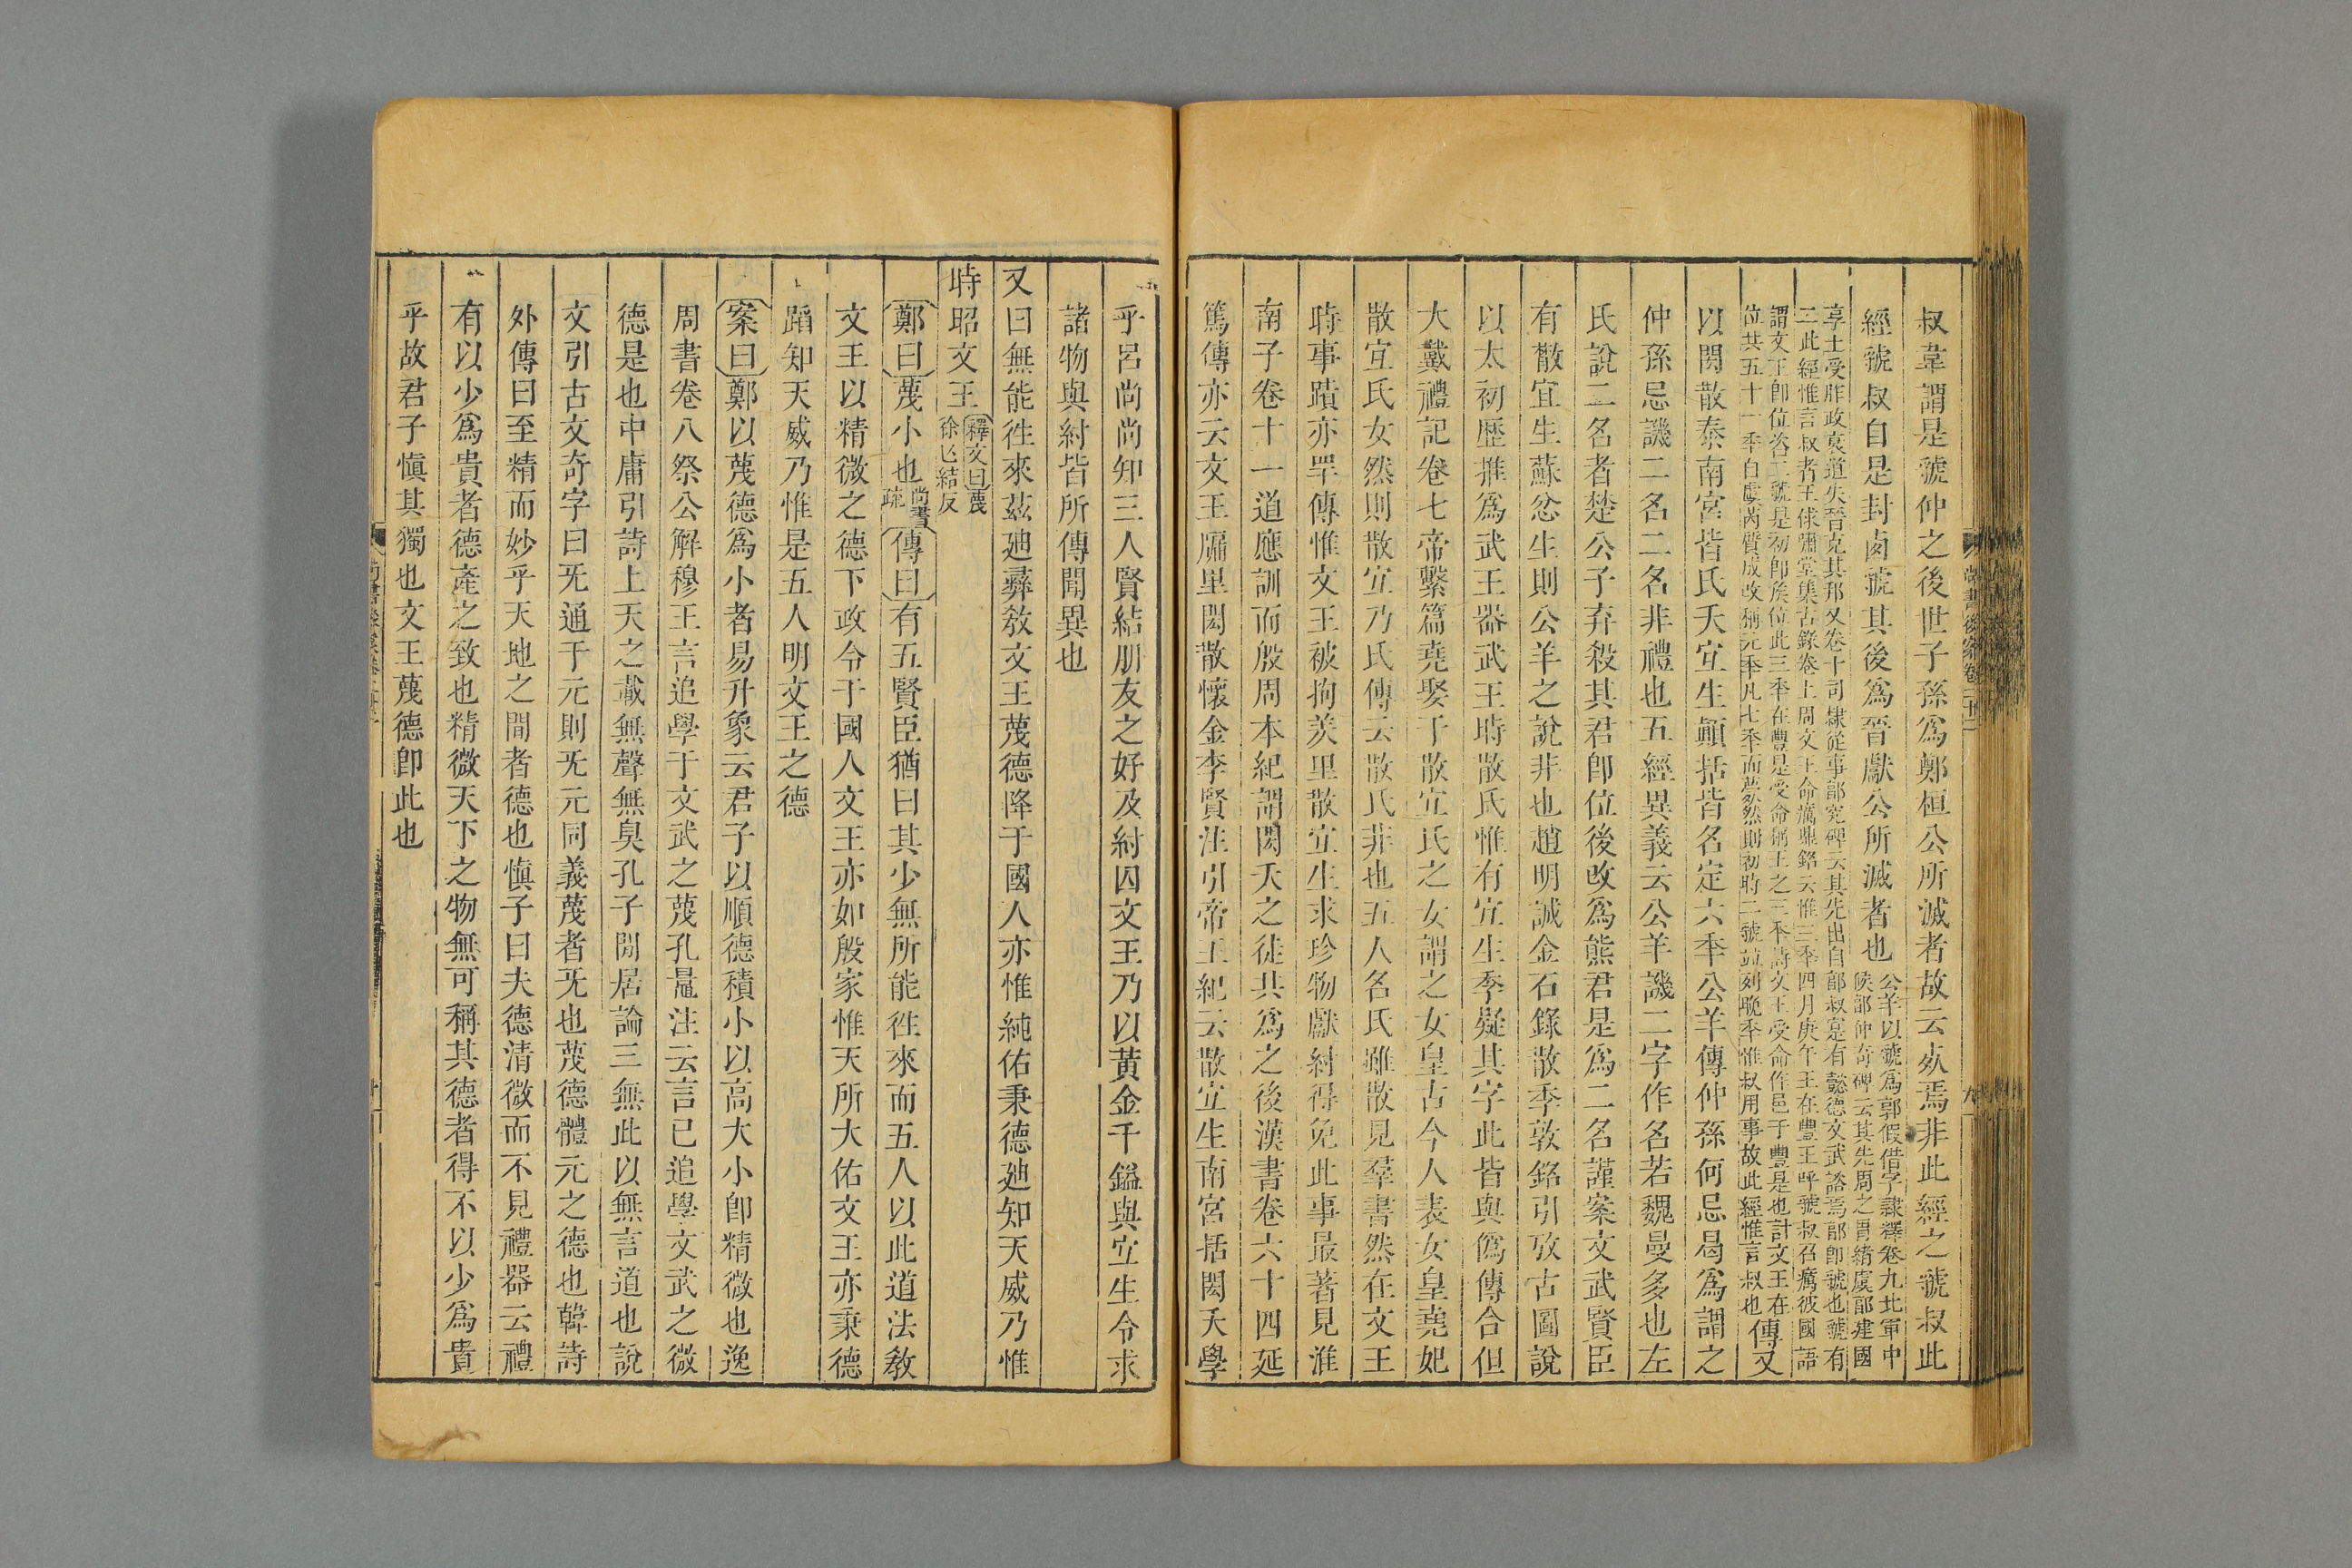 叔韋謂是虢仲之後世子孫爲鄭桓公所滅者故云㚣焉非此經之虢叔此
經虢叔自是封西虢其後爲晉獻公所滅者也公羊以虢爲郭假借字隸釋卷九北軍中
候郭仲奇碑云其先周之胄緒虞郭建國
享土受胙政衰道失晉克其邦又卷十司隸從事郭究碑云其先出自郭叔寔有懿德文武諮焉郭卽虢也虢有
二此經惟言叔者王俅嘯堂集古錄卷上周文王命癘鼎銘云惟三秊四月庚午王在豐王呼虢叔召癘彼國語
謂文王卽位咨二虢是初卽矦位此三秊在豐是受命稱王之三秊詩文王受命作邑于豐是也計文王在
位共五十一秊自虞芮質成改稱元秊凡七秊而薨然則初時二虢竝列晚秊惟叔用事故此經惟言叔也傳又
以閎散泰南宮皆氏夭宜生顚括皆名定六秊公羊傳仲孫何忌曷爲謂之
仲孫忌譏二名二名非禮也五經異義云公羊譏二字作名若魏曼多也左
氏說二名者楚公子弃殺其君卽位後改爲熊君是爲二名謹案文武賢臣
有散宜生蘇忿生則公羊之說非也趙明誠金石錄散季敦銘引攷古圖說
以太初歷推爲武王器武王時散氏惟有宜生季疑其字此皆與僞傳合但
大戴禮記卷七帝繫篇堯娶于散宜氏之女謂之女皇古今人表女皇堯妃
散宜氏女然則散宜乃氏傳云散氏非也五人名氏雖散見羣書然在文王
時事蹟亦罕傳惟文王被拘羑里散宜生求珍物獻紂得免此事最著見淮
南子卷十一道應訓而殷周本紀謂閎夭之徒共爲之後漢書卷六十四延
篤傳亦云文王牖里閎散懷金李賢注引帝王紀云散宜生南宮括閎夭學
乎呂尚尚知三人賢結朋友之好及紂囚文王乃以黃金千鎰與宜生令求
諸物與紂皆所傳聞異也
又曰無能徃來茲廸彞敎文王蔑德降于國人亦惟純佑秉德廸知天威乃惟
時昭文王釋文曰蔑
徐亾結反
鄭曰蔑小也尚書
疏傳曰有五賢臣猶曰其少無所能徃來而五人以此道法敎
文王以精微之德下政令于國人文王亦如殷家惟天所大佑文王亦秉德
蹈知天威乃惟是五人明文王之德
案曰鄭以蔑德爲小者易升象云君子以順德積小以高大小卽精微也逸
周書卷八祭公解穆王言追學于文武之蔑孔鼂注云言已追學文武之微
德是也中庸引詩上天之載無聲無臭孔子閒居論三無此以無言道也說
文引古文奇字曰无通于元則无元同義蔑者无也蔑德體元之德也韓詩
外傳曰至精而妙乎天地之間者德也愼子曰夫德清微而不見禮器云禮
有以少爲貴者德產之致也精微天下之物無可稱其德者得不以少爲貴
乎故君子愼其獨也文王蔑德卽此也